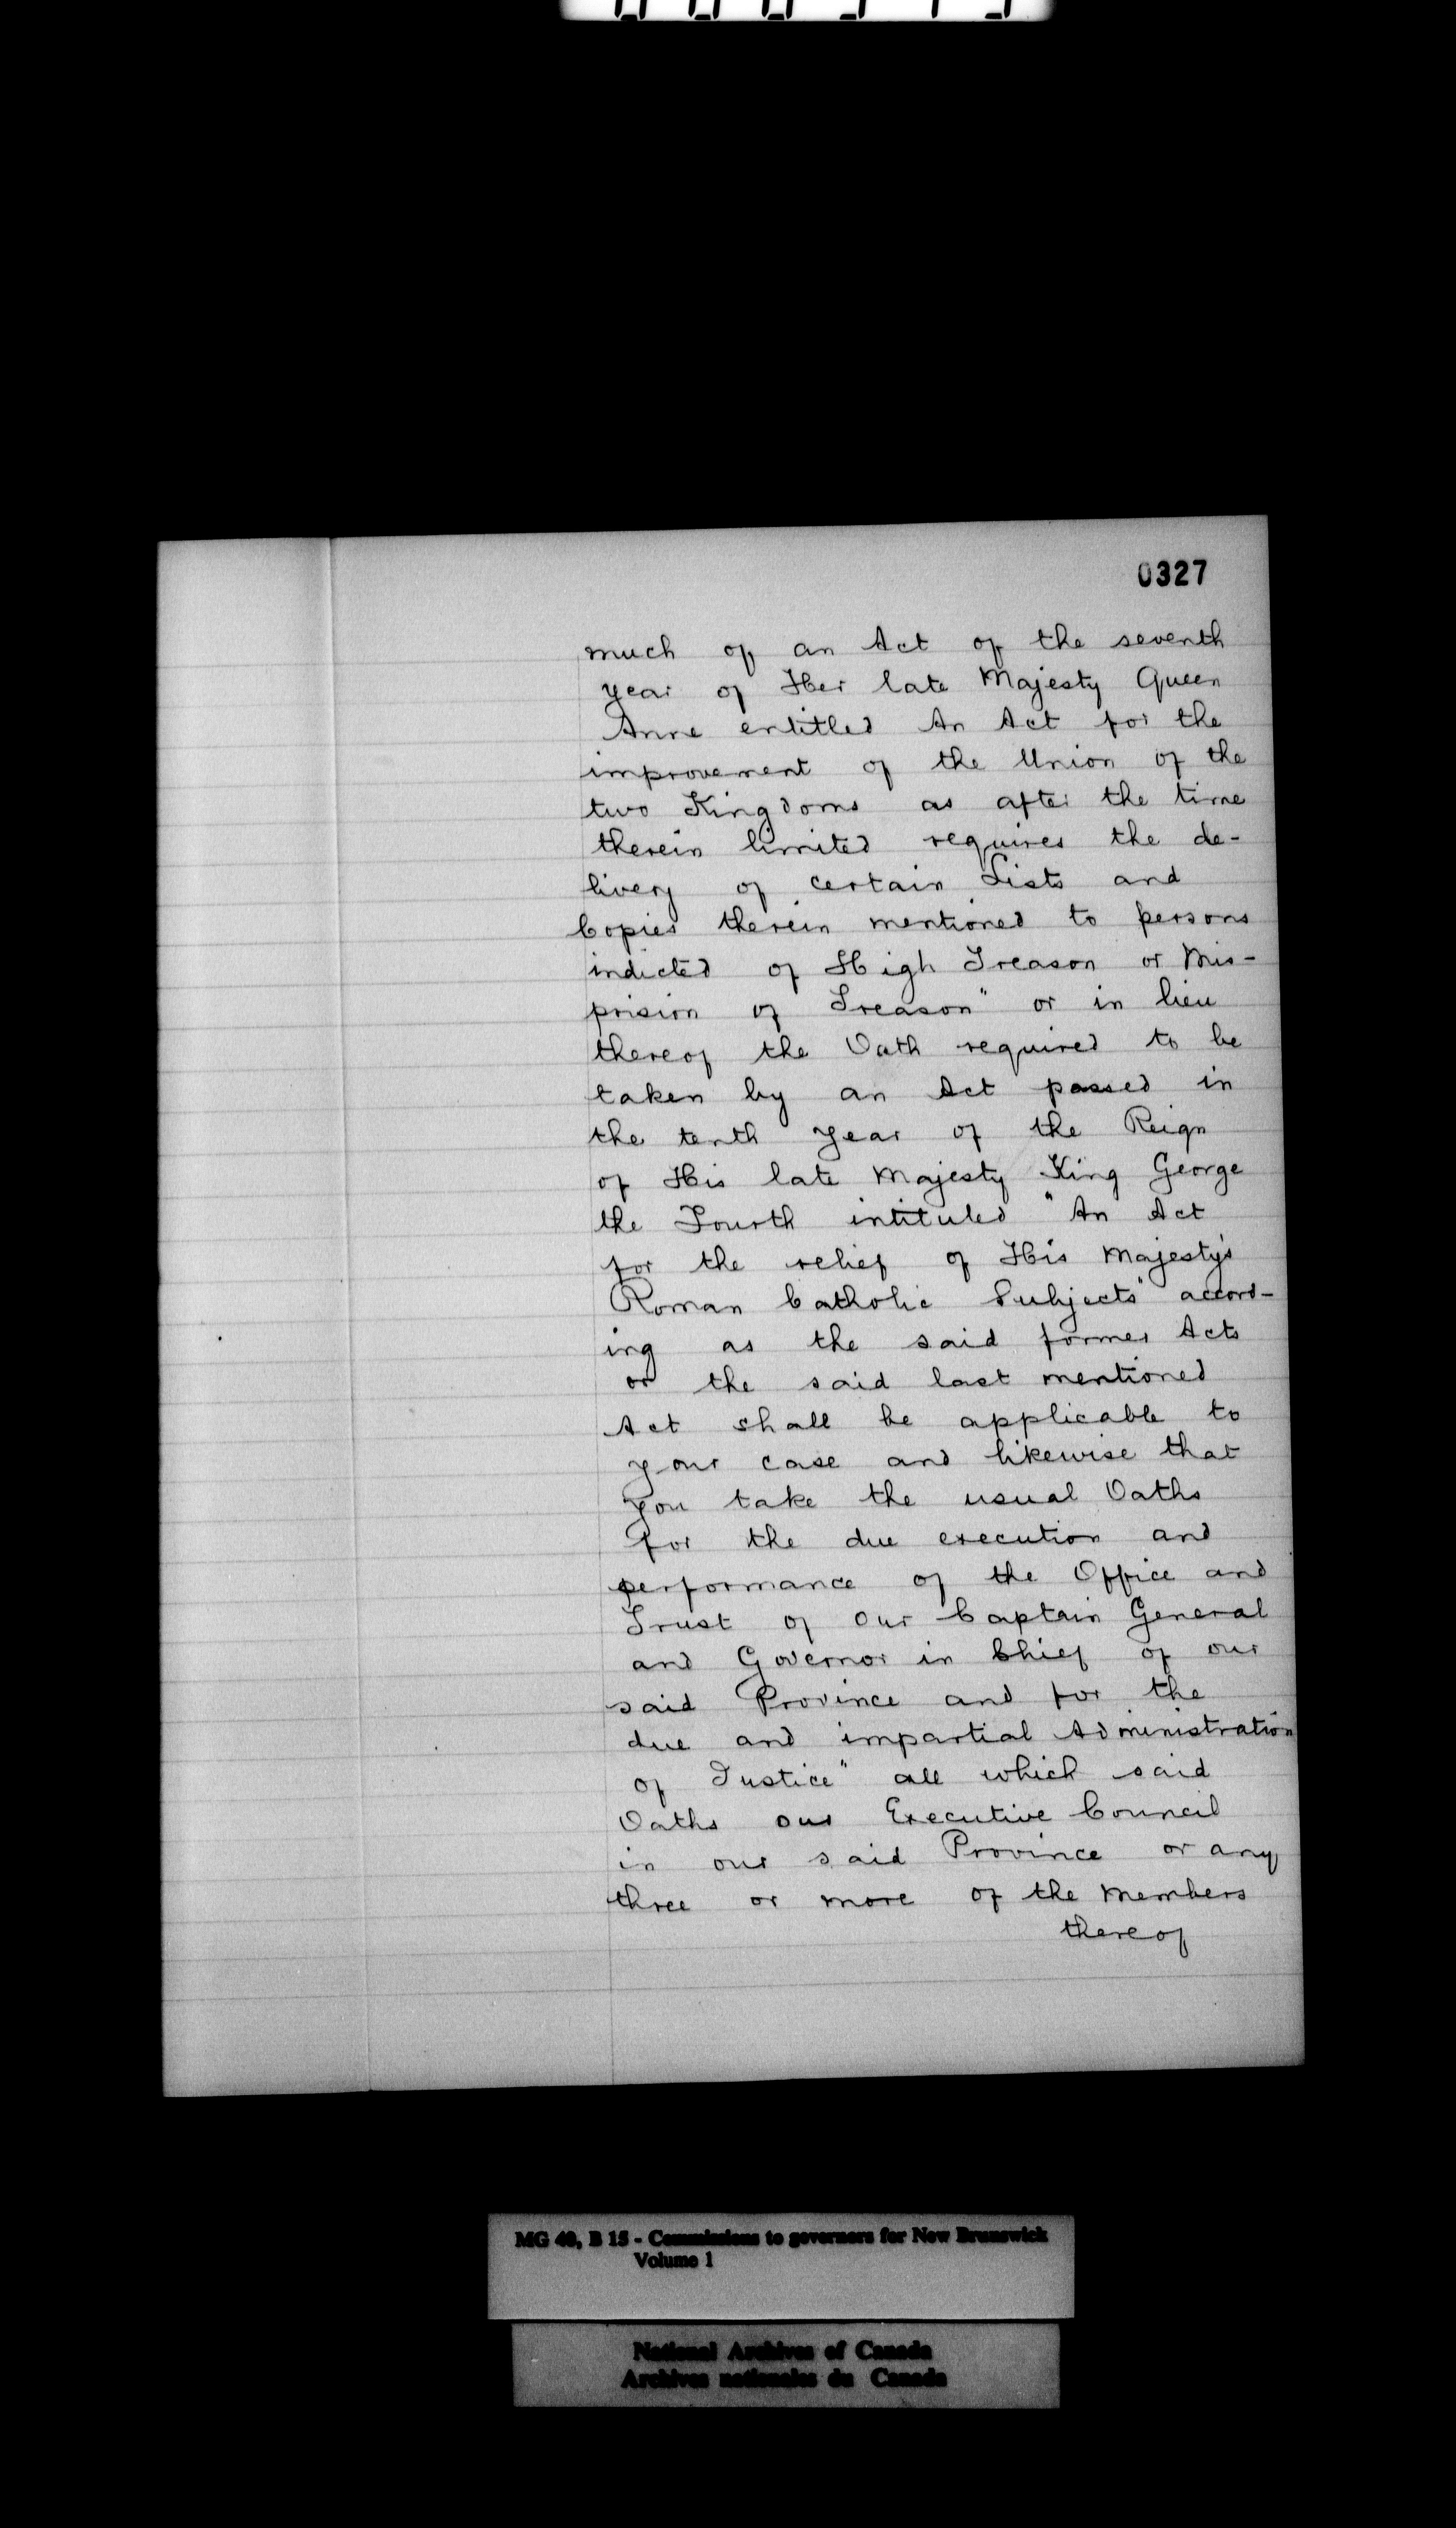 0327
much of an Act of the seventh
year of Her late Majesty Queen
Anne entitled An Act for the
improvement of the Union of the
two Kingdoms as after the time
therein limited requires the de-
livery of certain Lists and
Copies therein mentioned to persons
indicted of High Treason or Mis-
prision of Treason" or in lieu
thereof the Oath required to be
taken by an Act passed in
the tenth year of the Reign
of His late Majesty King George
the Fourth intituled "An Act
for the relief of His Majesty's
Roman Catholic Subjects" accord-
ing as the said former Acts
or the said last mentioned
Act shall be applicable to
your case and likewise that
you take the usual Oaths
for the due execution and
performance of the Office and
Trust of our Captain General
and Governor in Chief of our
said Province and for the
due and impartial Administration
of Justice" all which said
Oaths our Executive Council
in our said Province or any
three or more of the Members
thereof
MG 40, B 15 - Commissions to governors for New Brunswick
Volume 1
National Archives of Canada
Archives nationales du Canada